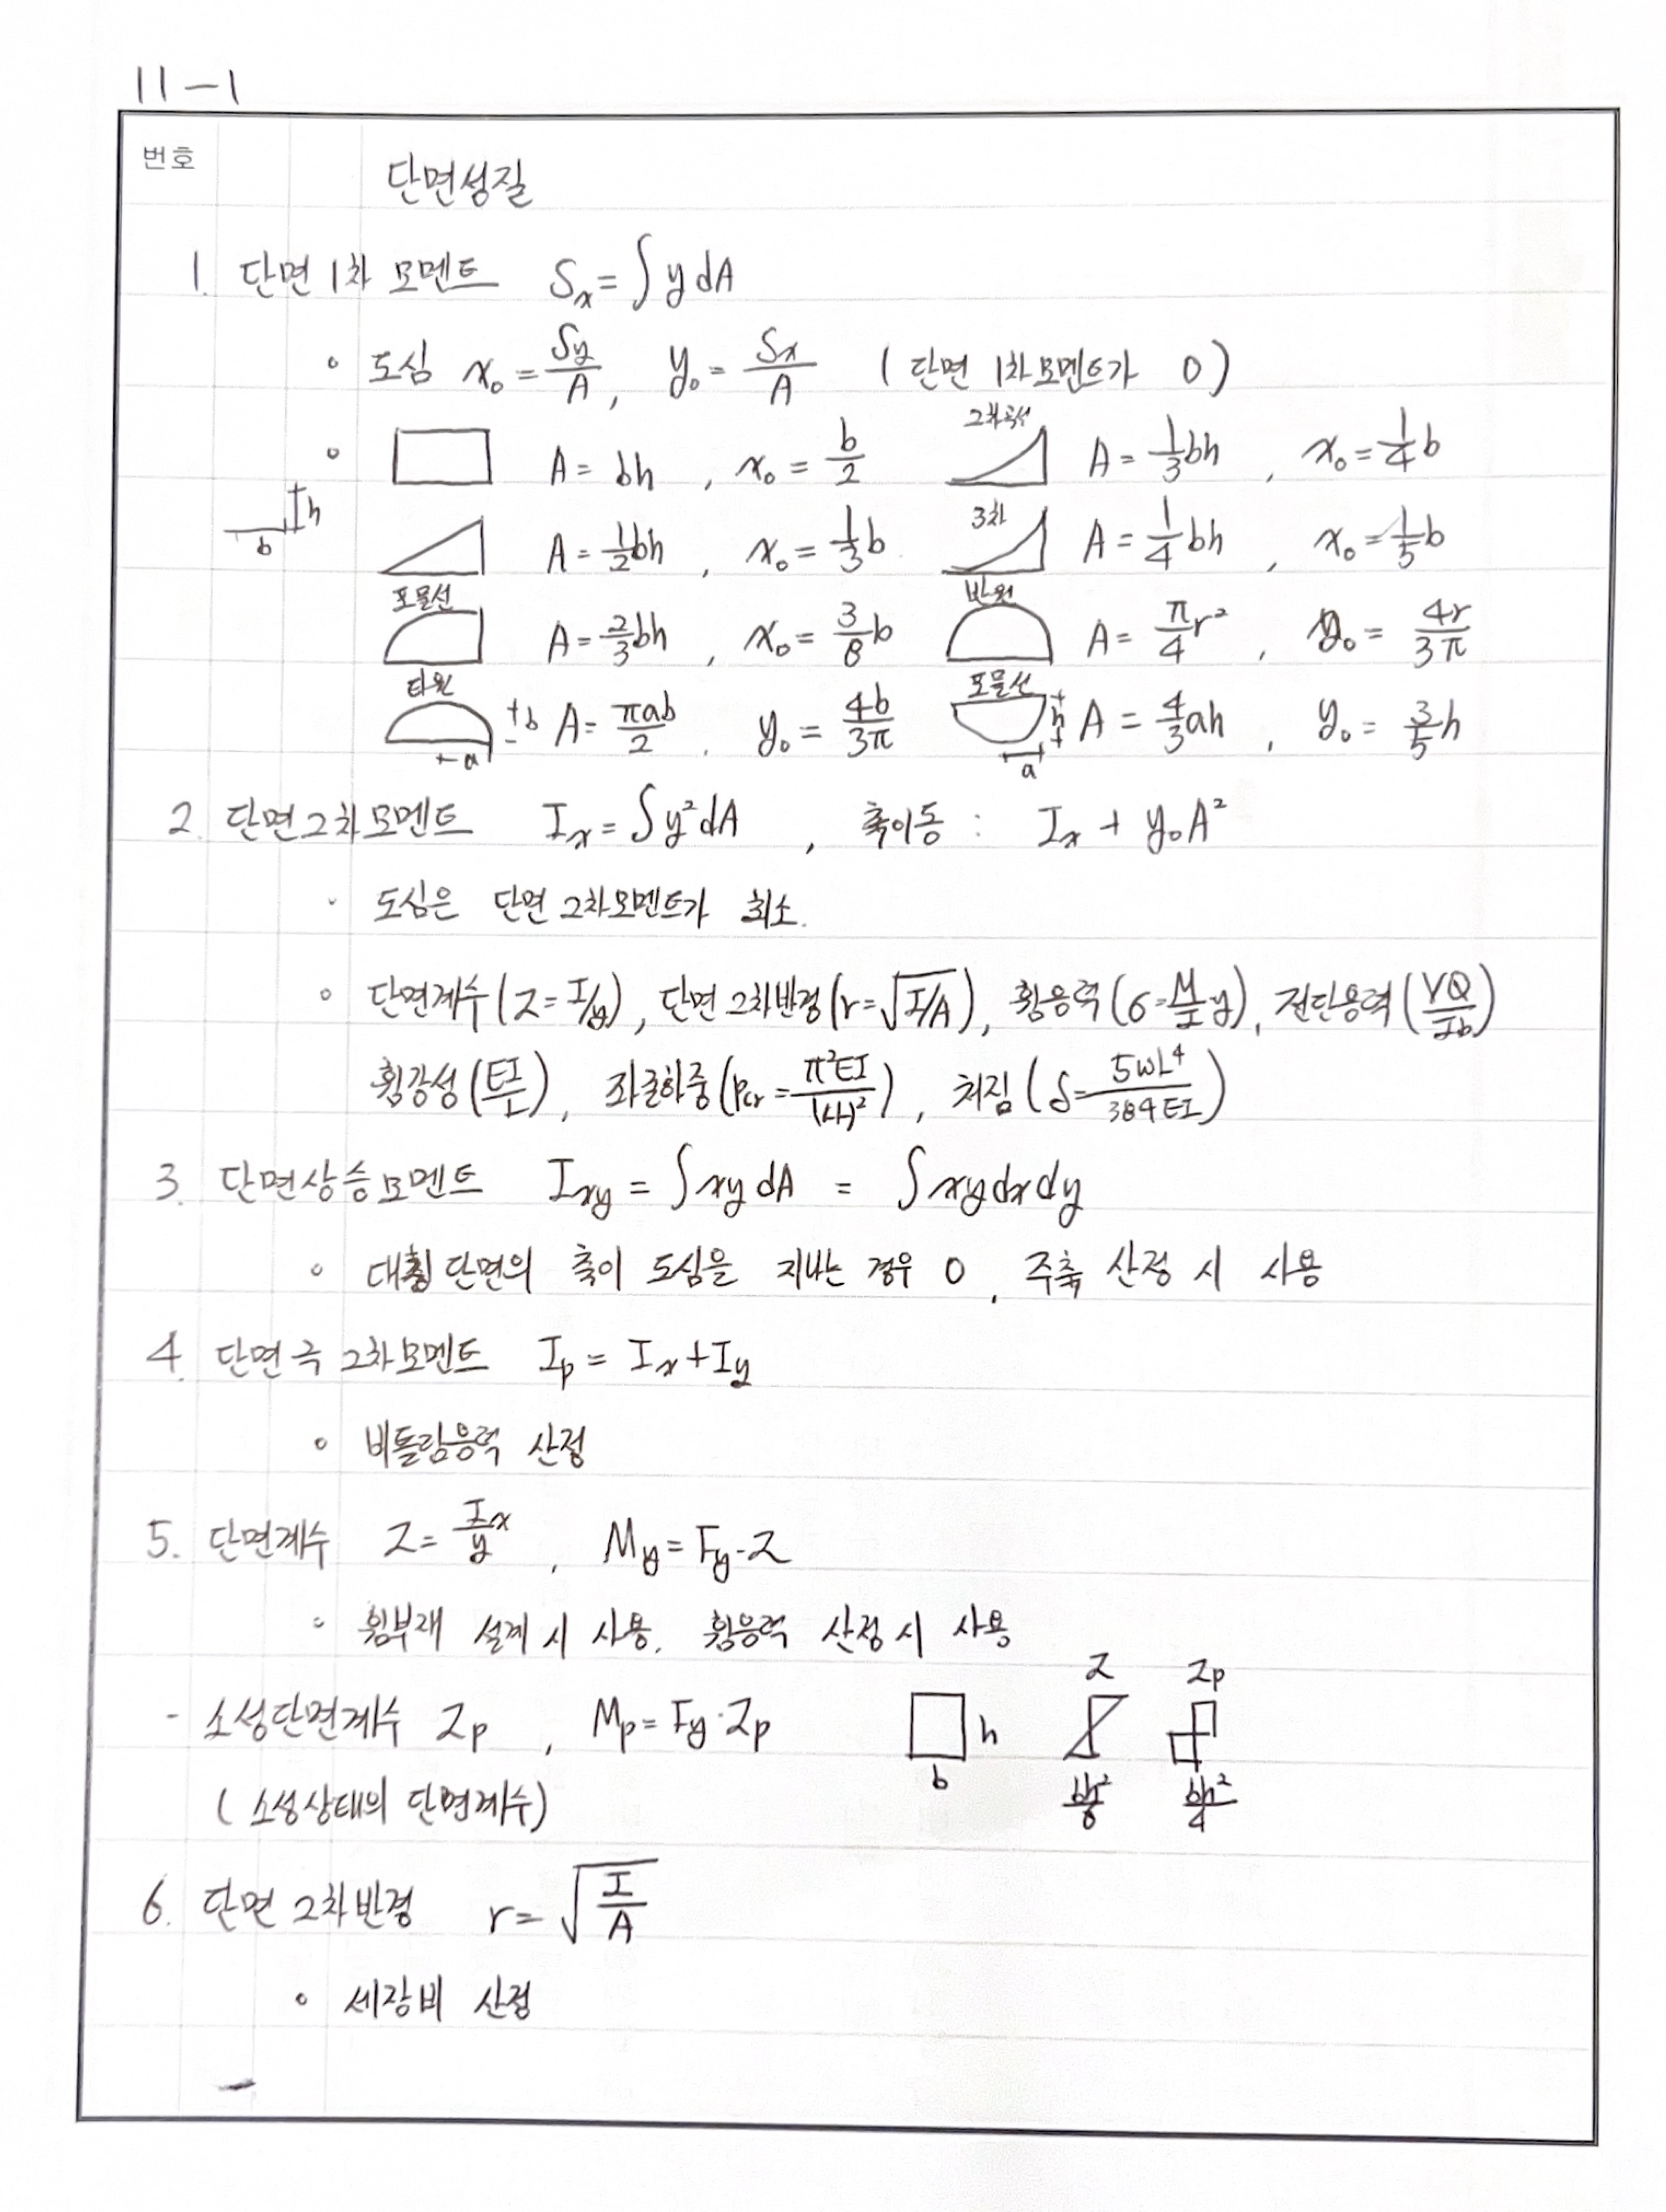 11-1
번호
단면성질
1. 단면 1차 모멘트 Sx = ∫ y dA
◦ 도심 x₀ = Sy/A , y₀ = Sx/A ( 단면 1차모멘트가 0 )
◦ A = bh , x₀ = b/2 2차곡선 A = 1/3 bh , x₀ = 1/4 b
h
b
A = 1/2 bh , x₀ = 1/3 b 3차 A = 1/4 bh , x₀ = 1/5 b
포물선 A = 2/3 bh , x₀ = 3/8 b 반원 A = π/4 r² , y₀ = 4r/3π
타원 b a A = πab/2 , y₀ = 4b/3π 포물선 h a A = 4/3 ah , y₀ = 3/5 h
2. 단면2차모멘트 Ix = ∫ y² dA , 축이동 : Ix + y₀A²
· 도심은 단면 2차모멘트가 최소.
◦ 단면계수 ( Z = I/y ) , 단면 2차반경 ( r = √I/A ) , 휨응력 ( σ = M/I y ) , 전단응력 ( VQ/Ib )
휨강성 ( EI/L ) , 좌굴하중 ( Pcr = π²EI/(kL)² ) , 처짐 ( δ = 5wL⁴/384EI )
3. 단면상승모멘트 Ixy = ∫ xy dA = ∫ xy dx dy
◦ 대칭단면의 축이 도심을 지나는 경우 0 , 주축 산정 시 사용
4. 단면극 2차모멘트 Ip = Ix + Iy
◦ 비틀림응력 산정
5. 단면계수 Z = Ix/y , My = Fy·Z
◦ 휨부재 설계 시 사용. 휨응력 산정 시 사용
- 소성단면계수 Zp , Mp = Fy·Zp b h Z bh²/6 Zp bh²/4
( 소성상태의 단면계수 )
6. 단면 2차반경 r = √I/A
◦ 세장비 산정
-